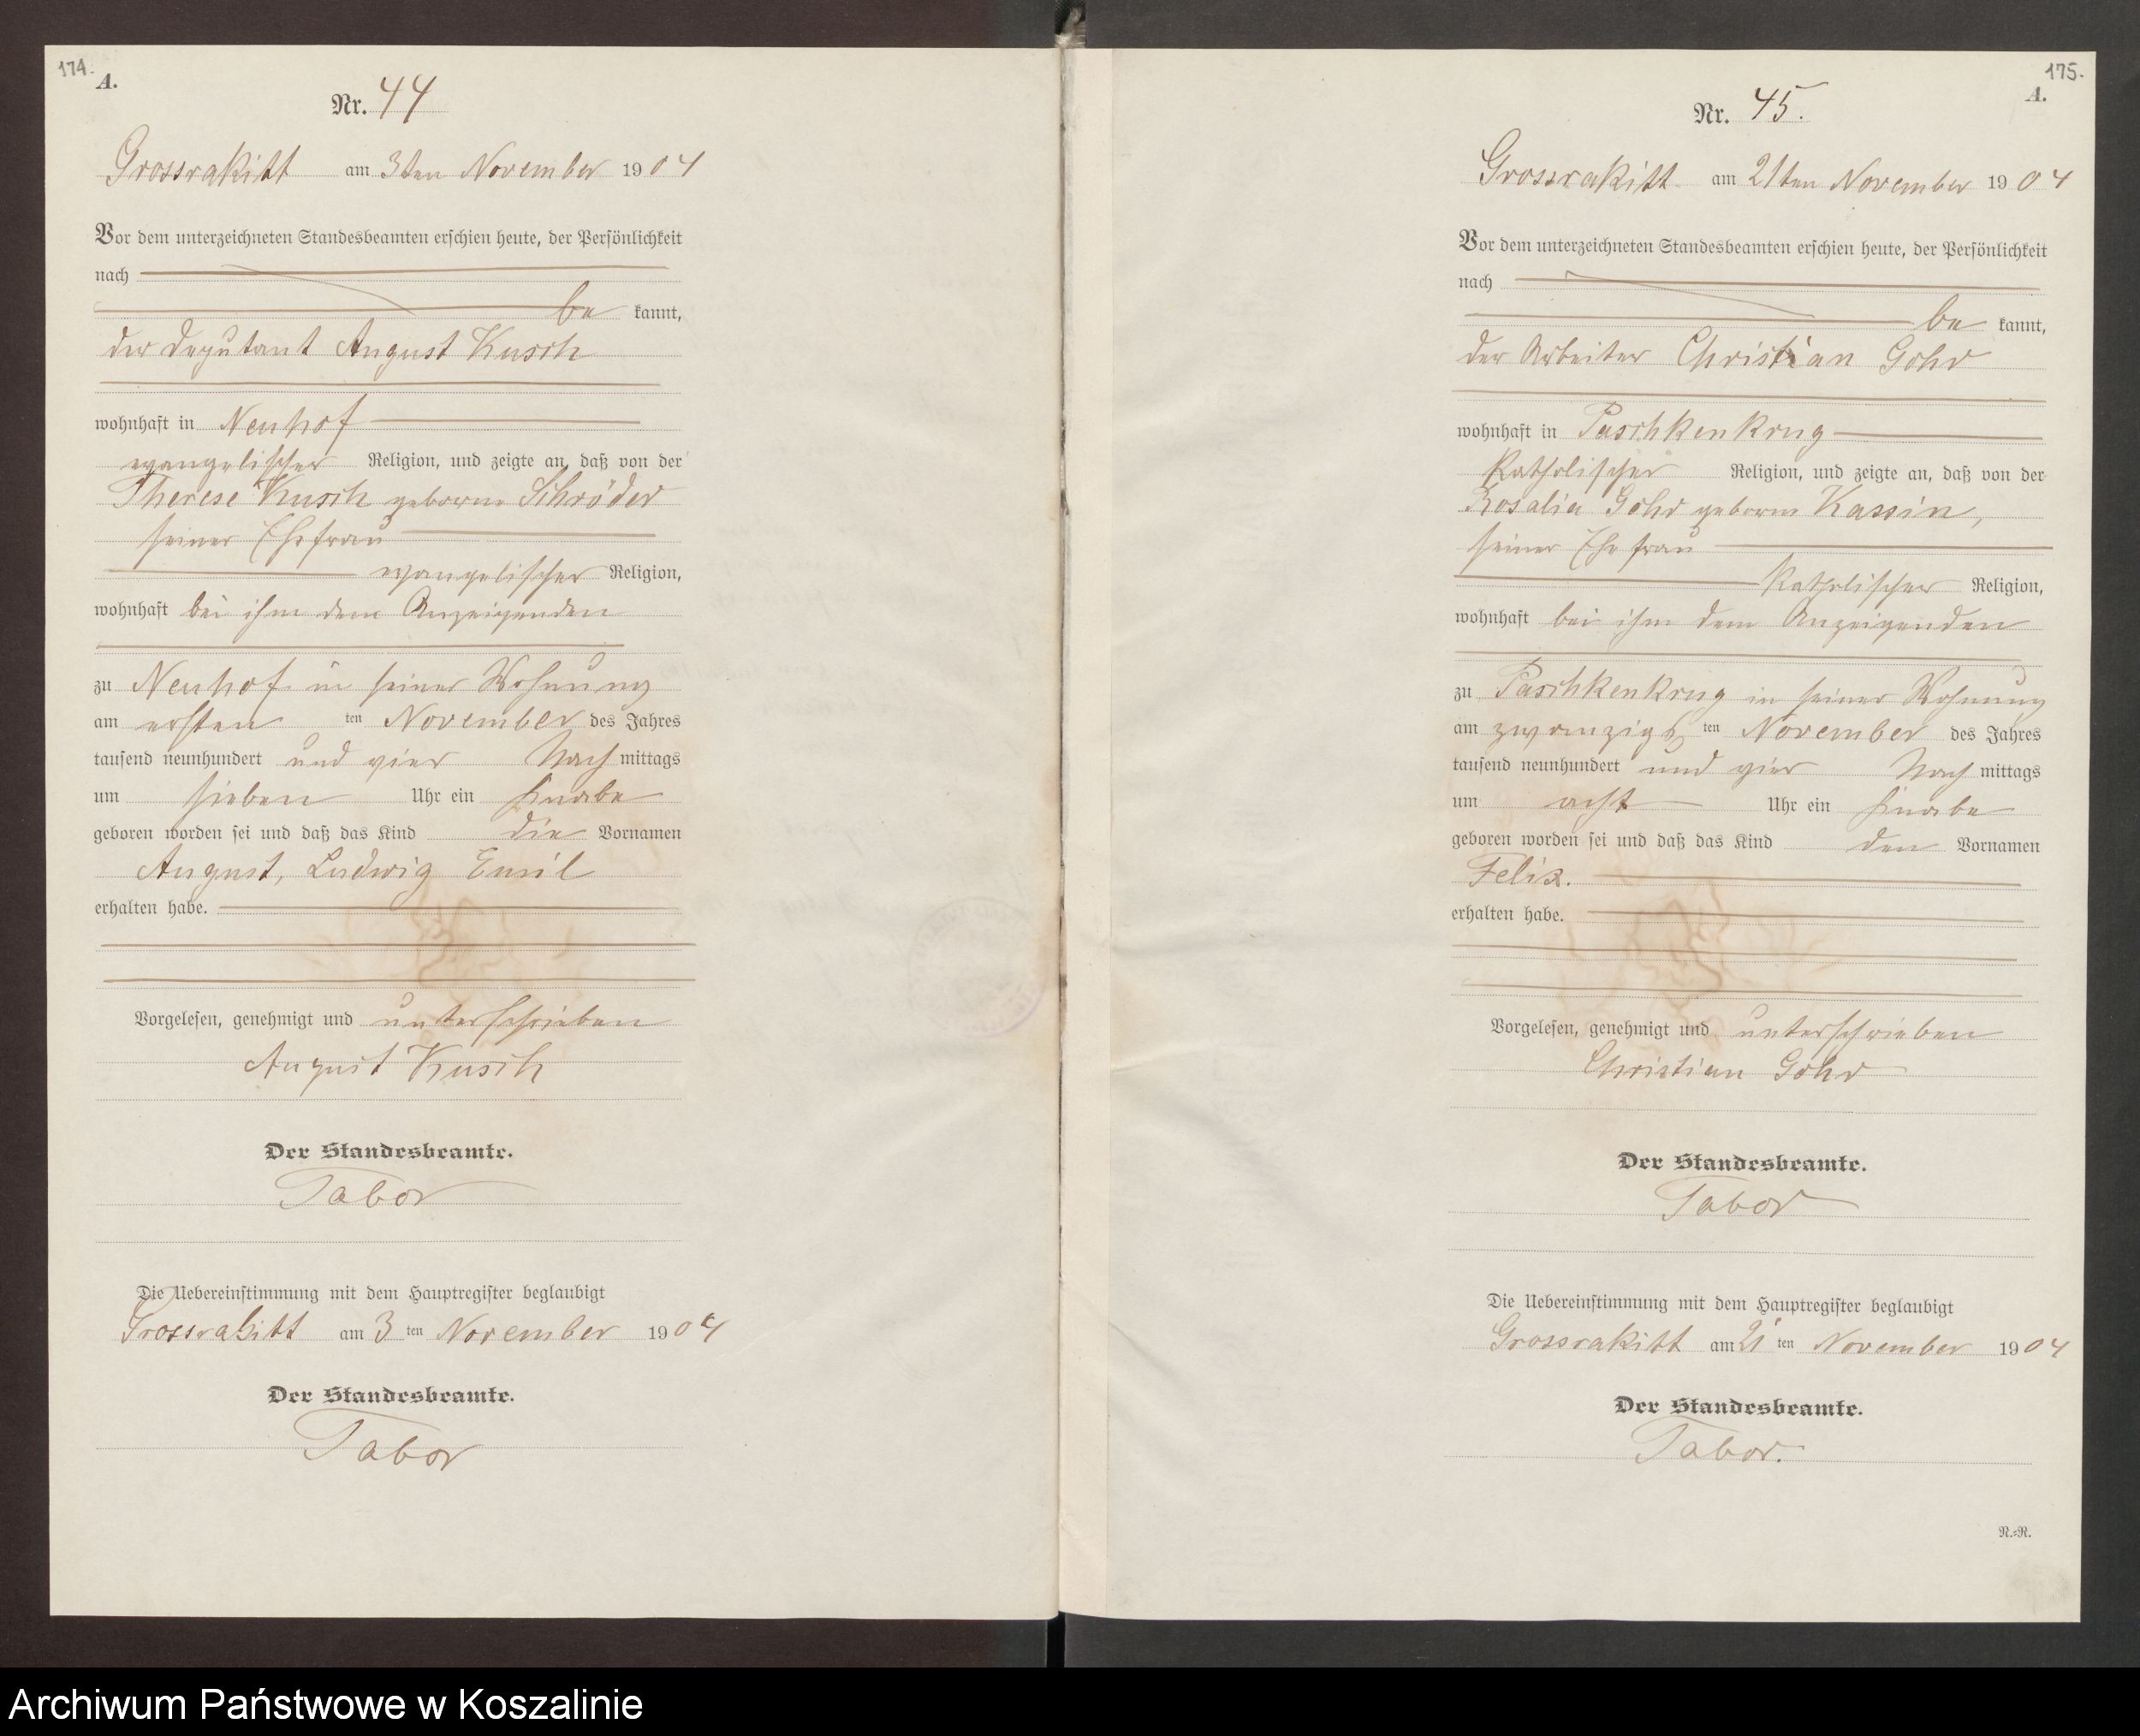 174.
A.
Nr. 44
Grossrakitt am 3ten November 1904
Vor dem unterzeichneten Standesbeamten erschien heute, der Persönlichkeit
nach
be kannt,
der Deputant August Kusch
wohnhaft in Neuhof
evangelischer Religion, und zeigte an, daß von der
Therese Kusch geborne Schröder
seiner Ehefrau
evangelischer Religion,
wohnhaft bei ihm dem Anzeigenden
zu Neuhof in seiner Wohnung
am ersten ten November des Jahres
tausend neunhundert und vier Nach mittags
um sieben Uhr ein Knabe
geboren worden sei und daß das Kind die Vornamen
August, Ludwig Emil
erhalten habe.
Vorgelesen, genehmigt und unterschrieben
August Kusch
Der Standesbeamte.
Tabor
Die Uebereinstimmung mit dem Hauptregister beglaubigt
Grossrakitt am 3 ten November 1904
Der Standesbeamte.
Tabor
175.
A.
Nr. 45.
Grossrakitt am 21ten November 1904
Vor dem unterzeichneten Standesbeamten erschien heute, der Persönlichkeit
nach
be kannt,
der Arbeiter Christian Gohr
wohnhaft in Paschkenkrug
katholischer Religion, und zeigte an, daß von der
Rosalia Gohr geborne Kassin,
seiner Ehefrau
katholischer Religion,
wohnhaft bei ihm dem Anzeigenden
zu Paschkenkrug in seiner Wohnung
am zwanzigs ten November des Jahres
tausend neunhundert und vier Nach mittags
um acht Uhr ein Knabe
geboren worden sei und daß das Kind den Vornamen
Felix.
erhalten habe.
Vorgelesen, genehmigt und unterschrieben
Christian Gohr
Der Standesbeamte.
Tabor
Die Uebereinstimmung mit dem Hauptregister beglaubigt
Grossrakitt am 21 ten November 1904
Der Standesbeamte.
Tabor.
R.=R.
Archiwum Państwowe w Koszalinie